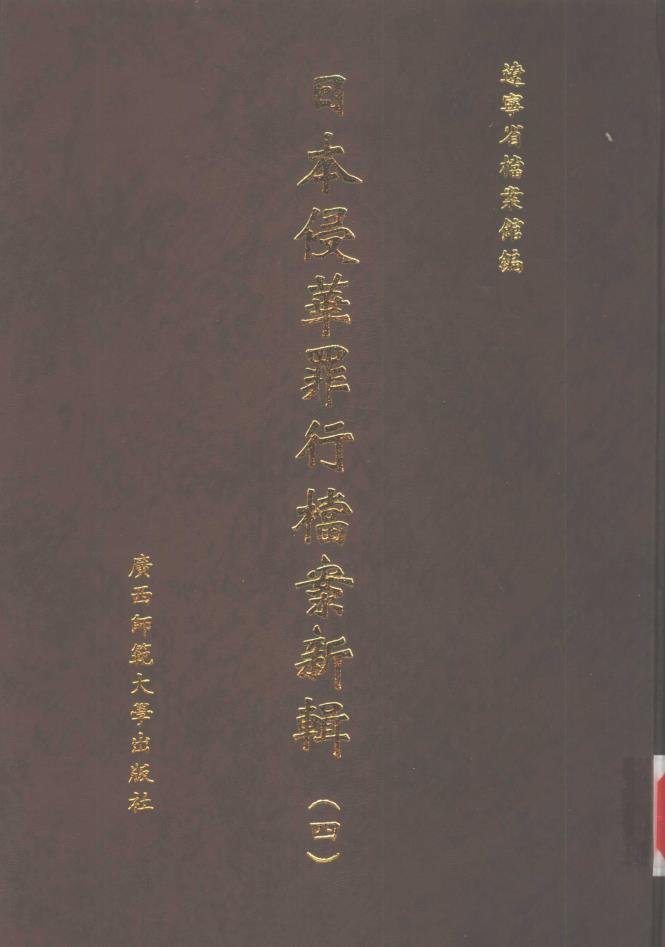 遼寧省檔案館編
日本侵華罪行檔案新輯（四）
廣西師範大學出版社